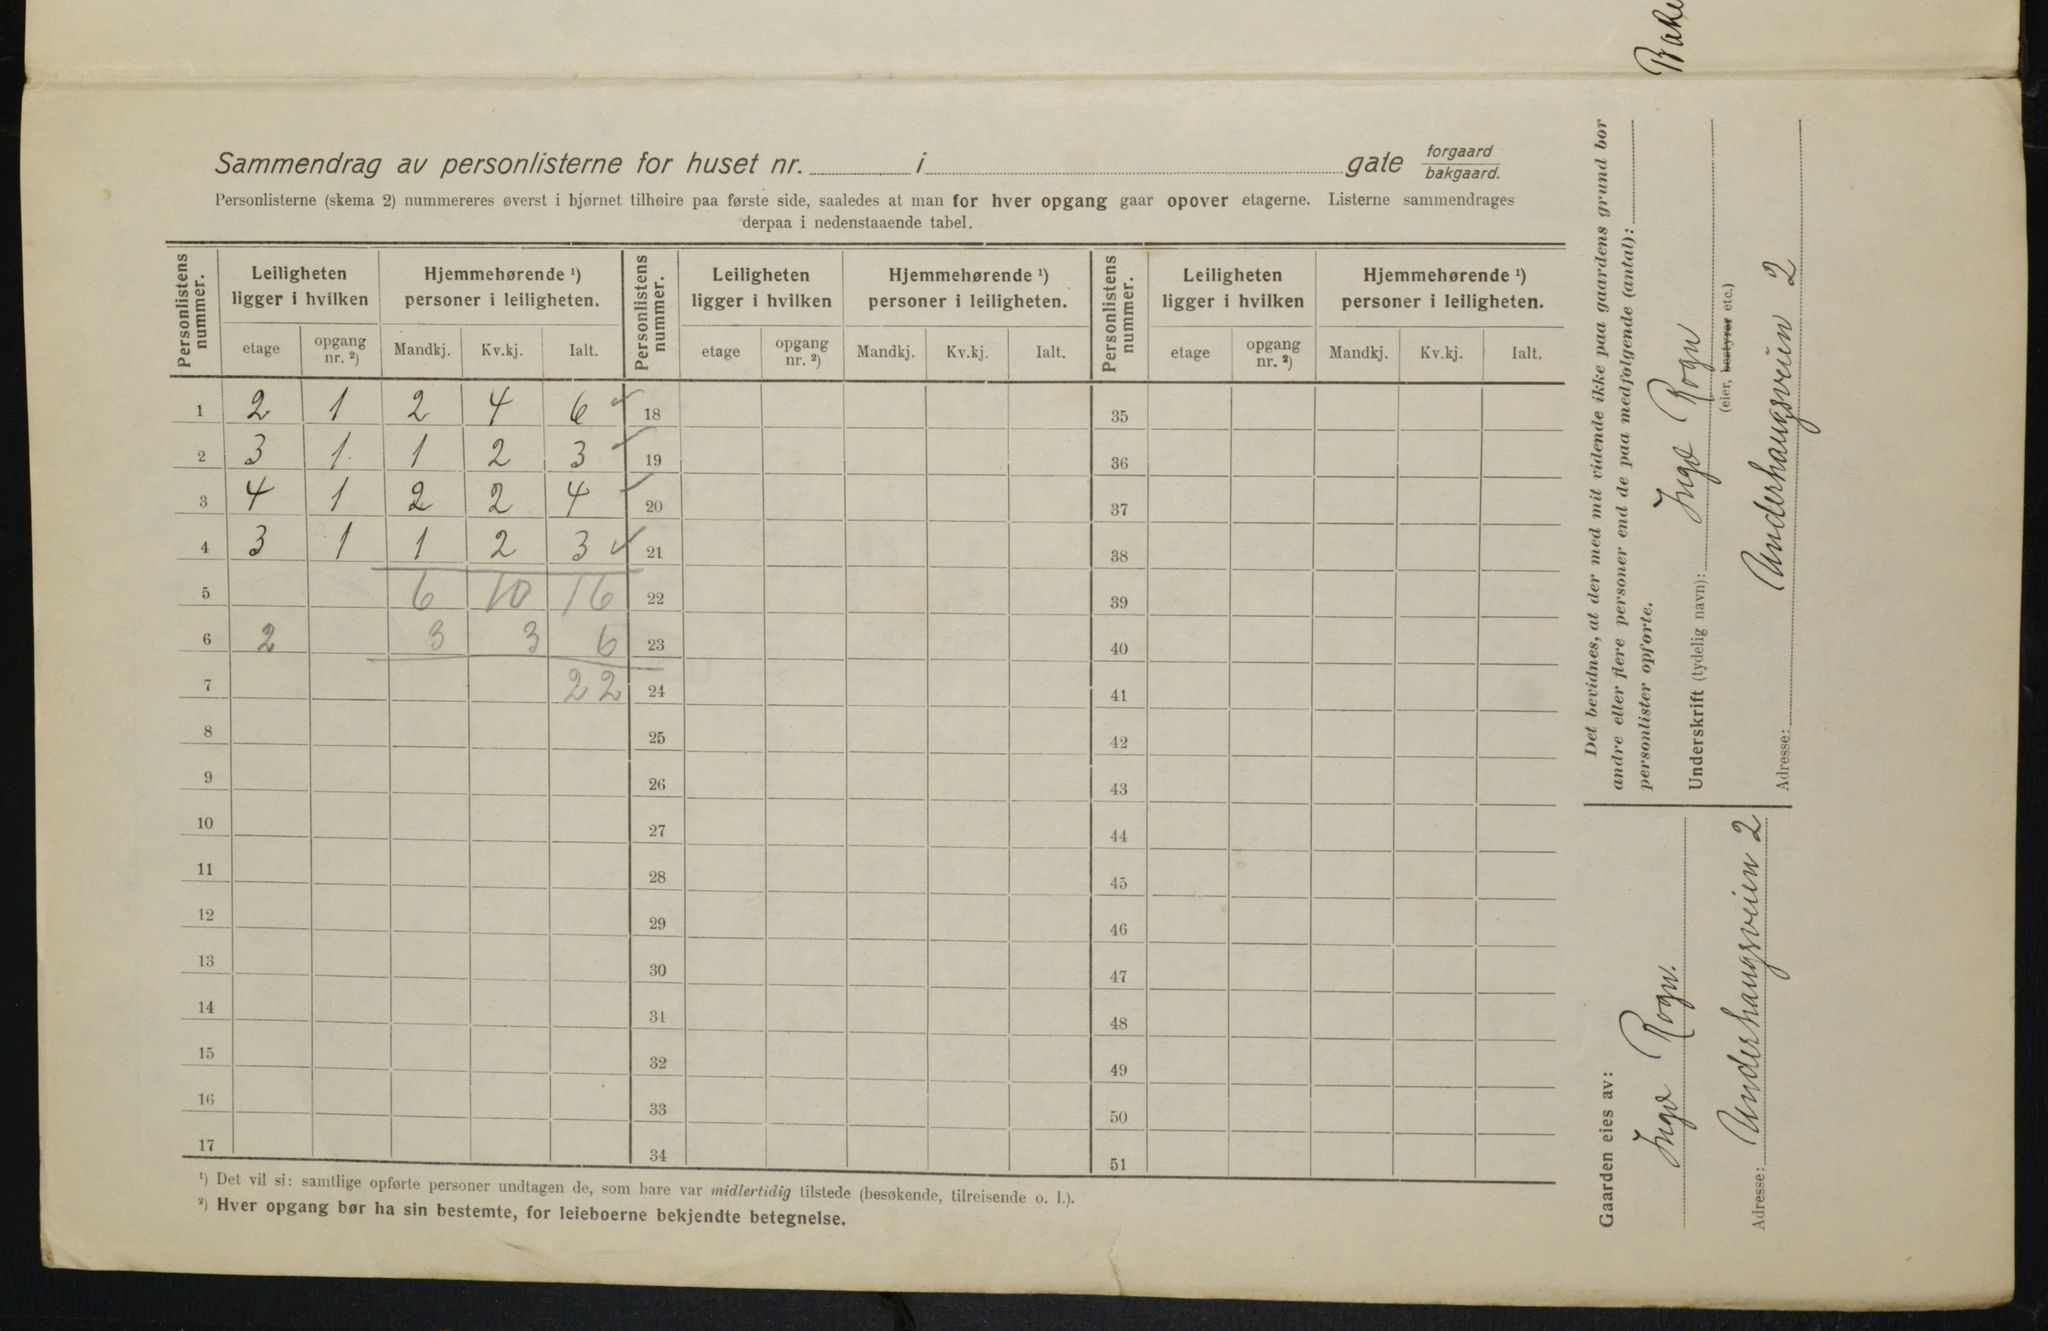 Sammendrag av personlisterne for huset nr. i gate forgaard bakgaard.
Personlisterne (skema 2) nummereres øverst i hjørnet tilhøire paa første side, saaledes at man for hver opgang gaar opover etagerne. Listerne sammendrages
derpaa i nedenstaaende tabel.
Personlistens nummer. Leiligheten ligger i hvilken Hjemmehørende ¹) personer i leiligheten. Personlistens nummer. Leiligheten ligger i hvilken Hjemmehørende ¹) personer i leiligheten. Personlistens nummer. Leiligheten ligger i hvilken Hjemmehørende ¹) personer i leiligheten.
etage opgang nr. ²) Mandkj. Kv.kj. Ialt. etage opgang nr. ²) Mandkj. Kv.kj. Ialt. etage opgang nr. ²) Mandkj. Kv.kj. Ialt.
1 2 1 2 4 6 18 35
2 3 1 1 2 3 19 36
3 4 1 2 2 4 20 37
4 3 1 1 2 3 21 38
5 6 10 16 22 39
6 2 3 3 6 23 40
7 22 24 41
8 25 42
9 26 43
10 27 44
11 28 45
12 29 46
13 30 47
14 31 48
15 32 49
16 33 50
17 34 51
¹) Det vil si: samtlige opførte personer undtagen de, som bare var midlertidig tilstede (besøkende, tilreisende o. l.).
²) Hver opgang bør ha sin bestemte, for leieboerne bekjendte betegnelse.
Det bevidnes, at der med mit vidende ikke paa gaardens grund bor
andre eller flere personer end de paa medfølgende (antal):
personlister opførte.
Underskrift (tydelig navn): Inga Rogn
(eier, bestyrer etc.)
Adresse: Underhaugsveien 2
Gaarden eies av:
Inga Rogn.
Adresse: Underhaugsveien 2